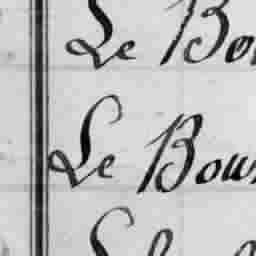 Le Bo
Le Bou